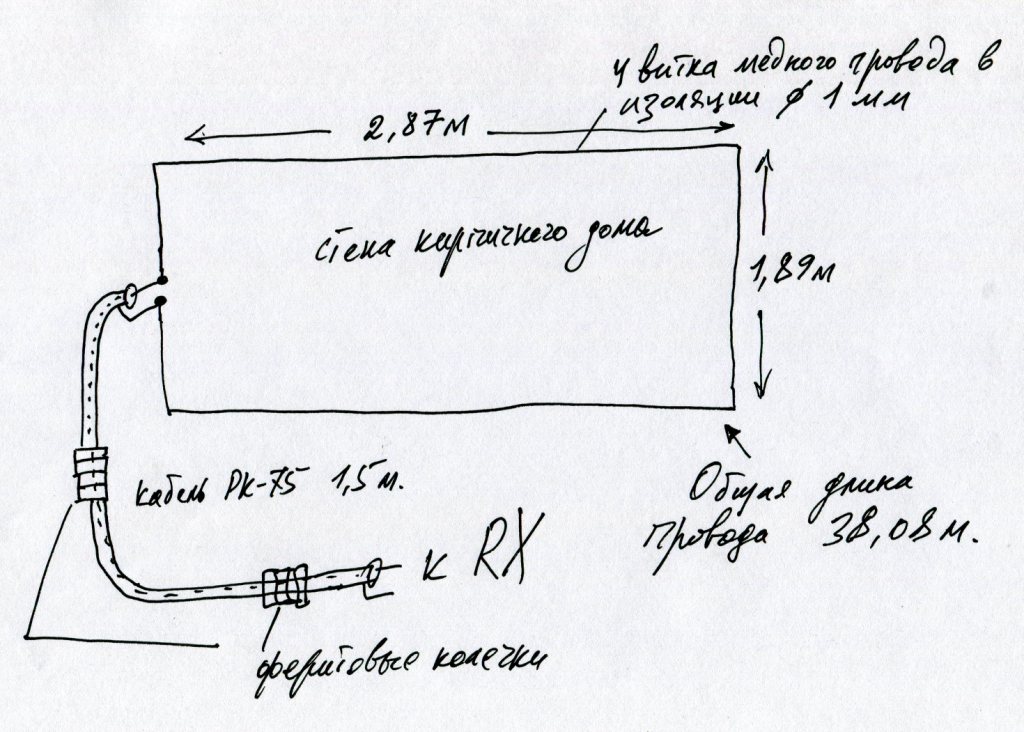 4 витка медного провода в
изоляции ϕ 1 мм
2,87м
стена кирпичного дома
1,89м
кабель РК-75 1,5м.
Общая длина
провода 38,08м.
к RX
феритовые колечки